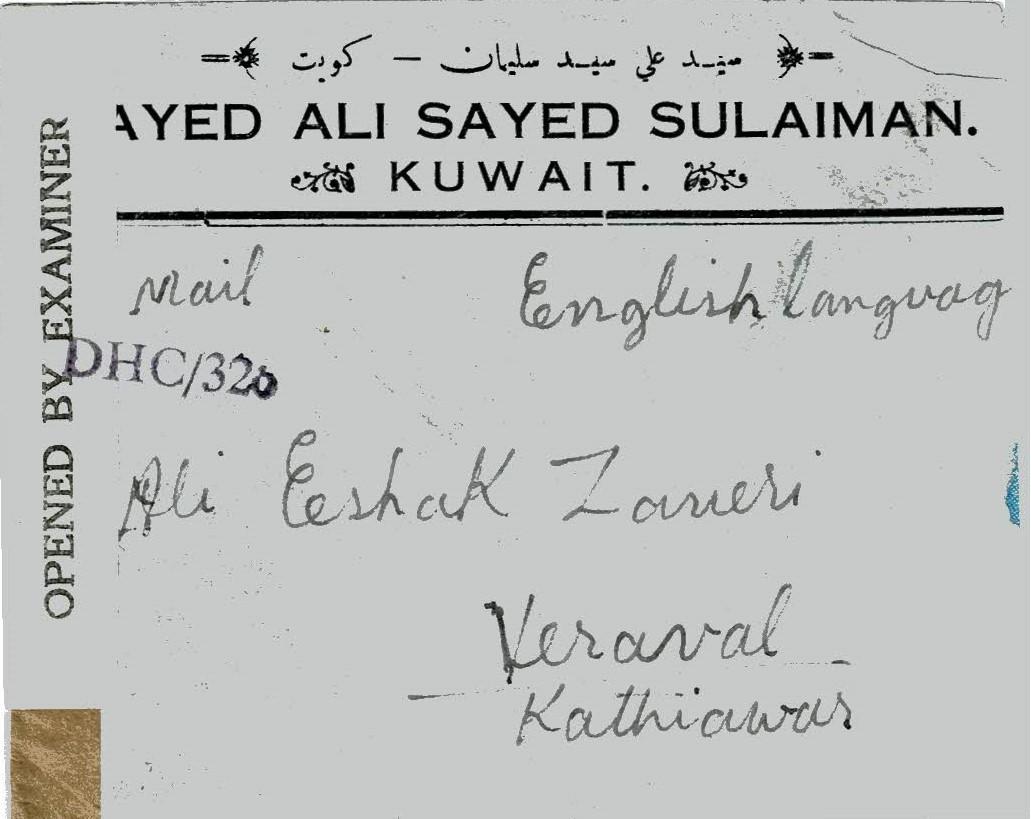 سيد علي سيد سليمان — كويت
AYED ALI SAYED SULAIMAN.
KUWAIT.
OPENED BY EXAMINER
Mail English languag
DHC/32
Ali Eeshak Zaveri
Veraval
Kathiawar